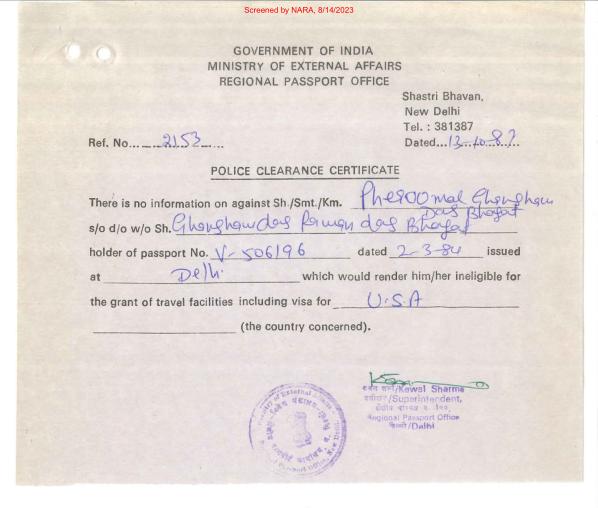 Screened by NARA, 8/14/2023
GOVERNMENT OF INDIA
MINISTRY OF EXTERNAL AFFAIRS
REGIONAL PASSPORT OFFICE
Shastri Bhavan,
New Delhi
Tel. : 381387
Ref. No. 2153 Dated 13-10-87
POLICE CLEARANCE CERTIFICATE
There is no information on against Sh./Smt./Km. Pheroomal Ghansham
Das Bhagat
s/o d/o w/o Sh. Ghanshamdas Ramandas Bhagat
holder of passport No. V-506196 dated 2-3-84 issued
at Delhi which would render him/her ineligible for
the grant of travel facilities including visa for U.S.A
(the country concerned).
/Kewal Sharma
/Superintendent,
Regional Passport Office
दिल्ली/Delhi